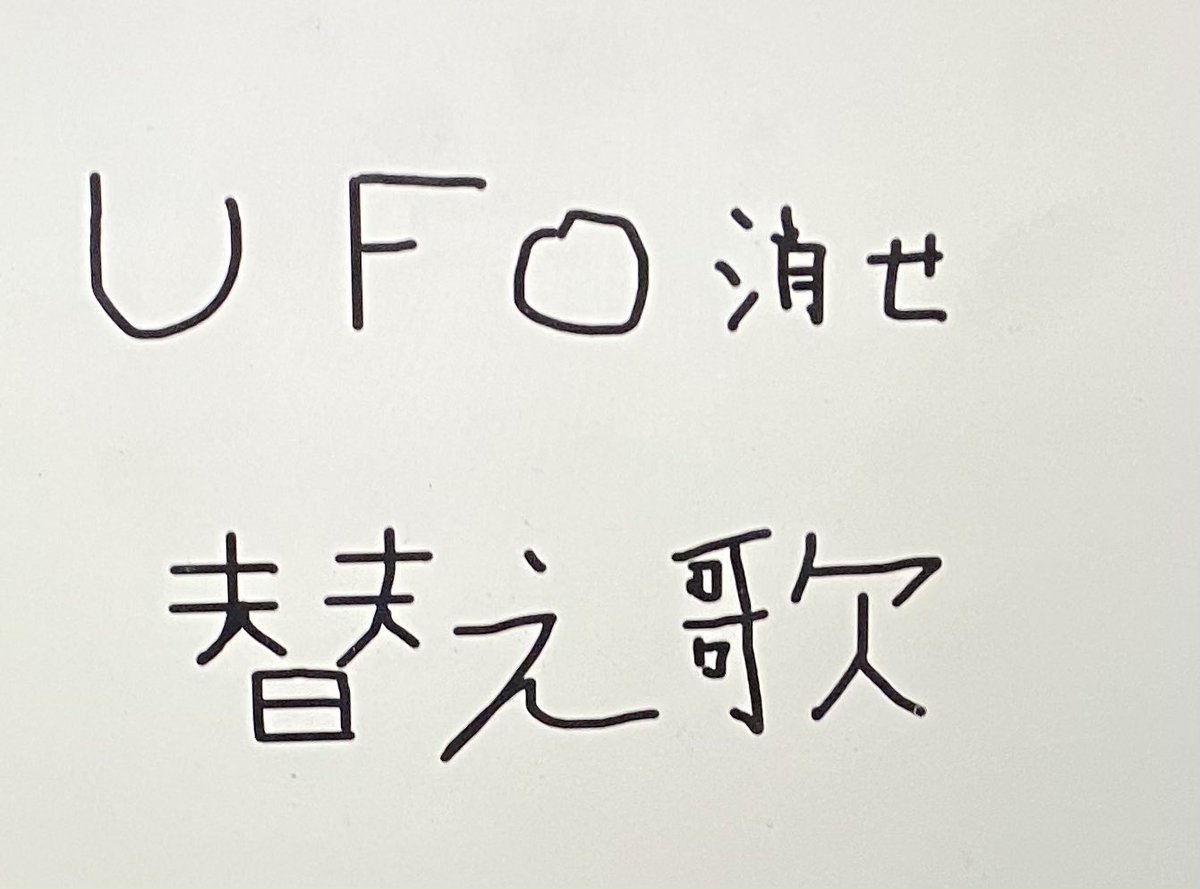 UFO消せ
替え歌